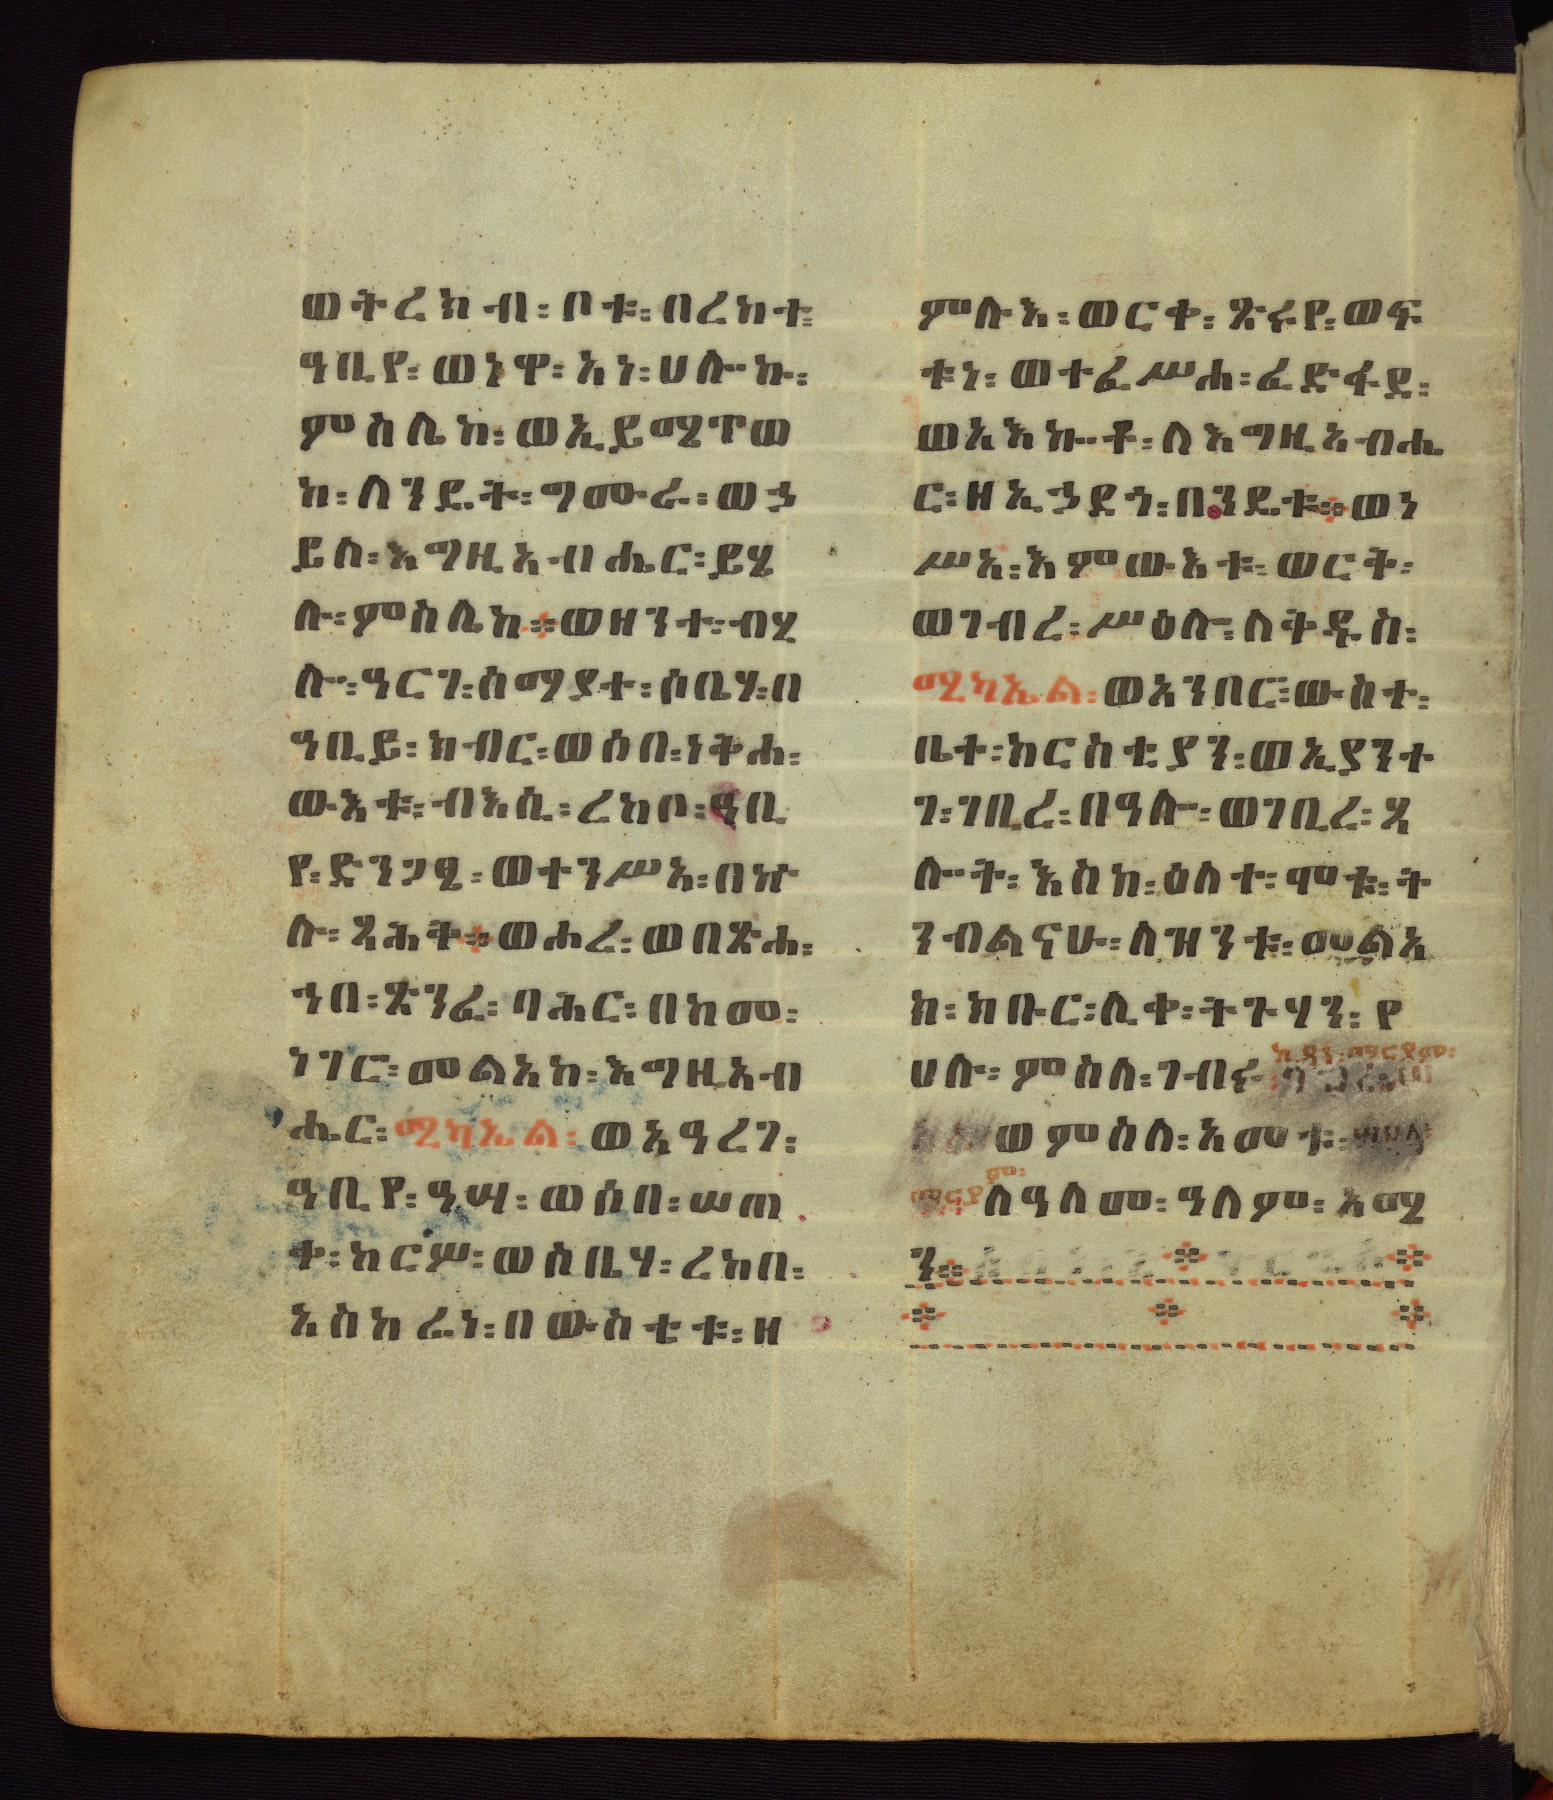 ወትረክብ፡ ቦቱ፡ በረከተ፡
ዓቢየ፡ ወነዋ፡ አነ፡ ሀሎኩ፡
ምስሌከ፡ ወኢይሜጥወ
ከ፡ ለንዴት፡ ግሙራ፡ ወኃ
ይለ፡ እግዚአብሔር፡ ይሄ
ሉ፡ ምስሌከ። ወዘንተ፡ ብሂ
ሎ፡ ዓርገ፡ ሰማያተ፡ ሰቤሃ፡ በ
ዓቢይ፡ ክብር፡ ወሶበ፡ ነቅሐ፡
ውእቱ፡ ብእሲ፡ ረከቦ፡ ዓቢ
የ፡ ድንጋፄ፡ ወተንሥአ፡ በኵ
ሉ፡ ጻሕቅ። ወሐረ፡ ወበጽሐ፡
ኀበ፡ ጽንፈ፡ ባሕር፡ በከመ፡
ነገሮ፡ መልአከ፡ እግዚአብ
ሔር፡ ሚካኤል፡ ወአዓረገ፡
ዓቢየ፡ ዓሣ፡ ወሶበ፡ ሠጠ
ቀ፡ ከርሦ፡ ወሰቤሃ፡ ረከበ፡
አስከሬነ፡ በውስቴቱ፡ ዘ
ምሉእ፡ ወርቀ፡ ጽሩየ፡ ወፍ
ቱነ፡ ወተፈሥሐ፡ ፈድፋደ፡
ወአእኰቶ፡ ለእግዚአብሔ
ር፡ ዘኢኃደጎ፡ በንዴቱ። ወነ
ሥአ፡ እምውእቱ፡ ወርቅ፡
ወገብረ፡ ሥዕሎ፡ ለቅዱስ፡
ሚካኤል፡ ወአንበሮ፡ ውስተ፡
ቤተ፡ ክርስቲያን፡ ወኢያንተ
ገ፡ ገቢረ፡ በዓሎ፡ ወገቢረ፡ ጸ
ሎት፡ እስከ፡ ዕለተ፡ ሞቱ፡ ት
ንብልናሁ፡ ለዝንቱ፡ መልአ
ክ፡ ክቡር፡ ሊቀ፡ ትጉሃን፡ የ
ሀሉ፡ ምስለ፡ ገብሩ፡ ኪዳነ፡ ማርያም፡
ወምስለ፡ አመቱ፡
ለዓለመ፡ ዓለም፡ አሜ
ን።